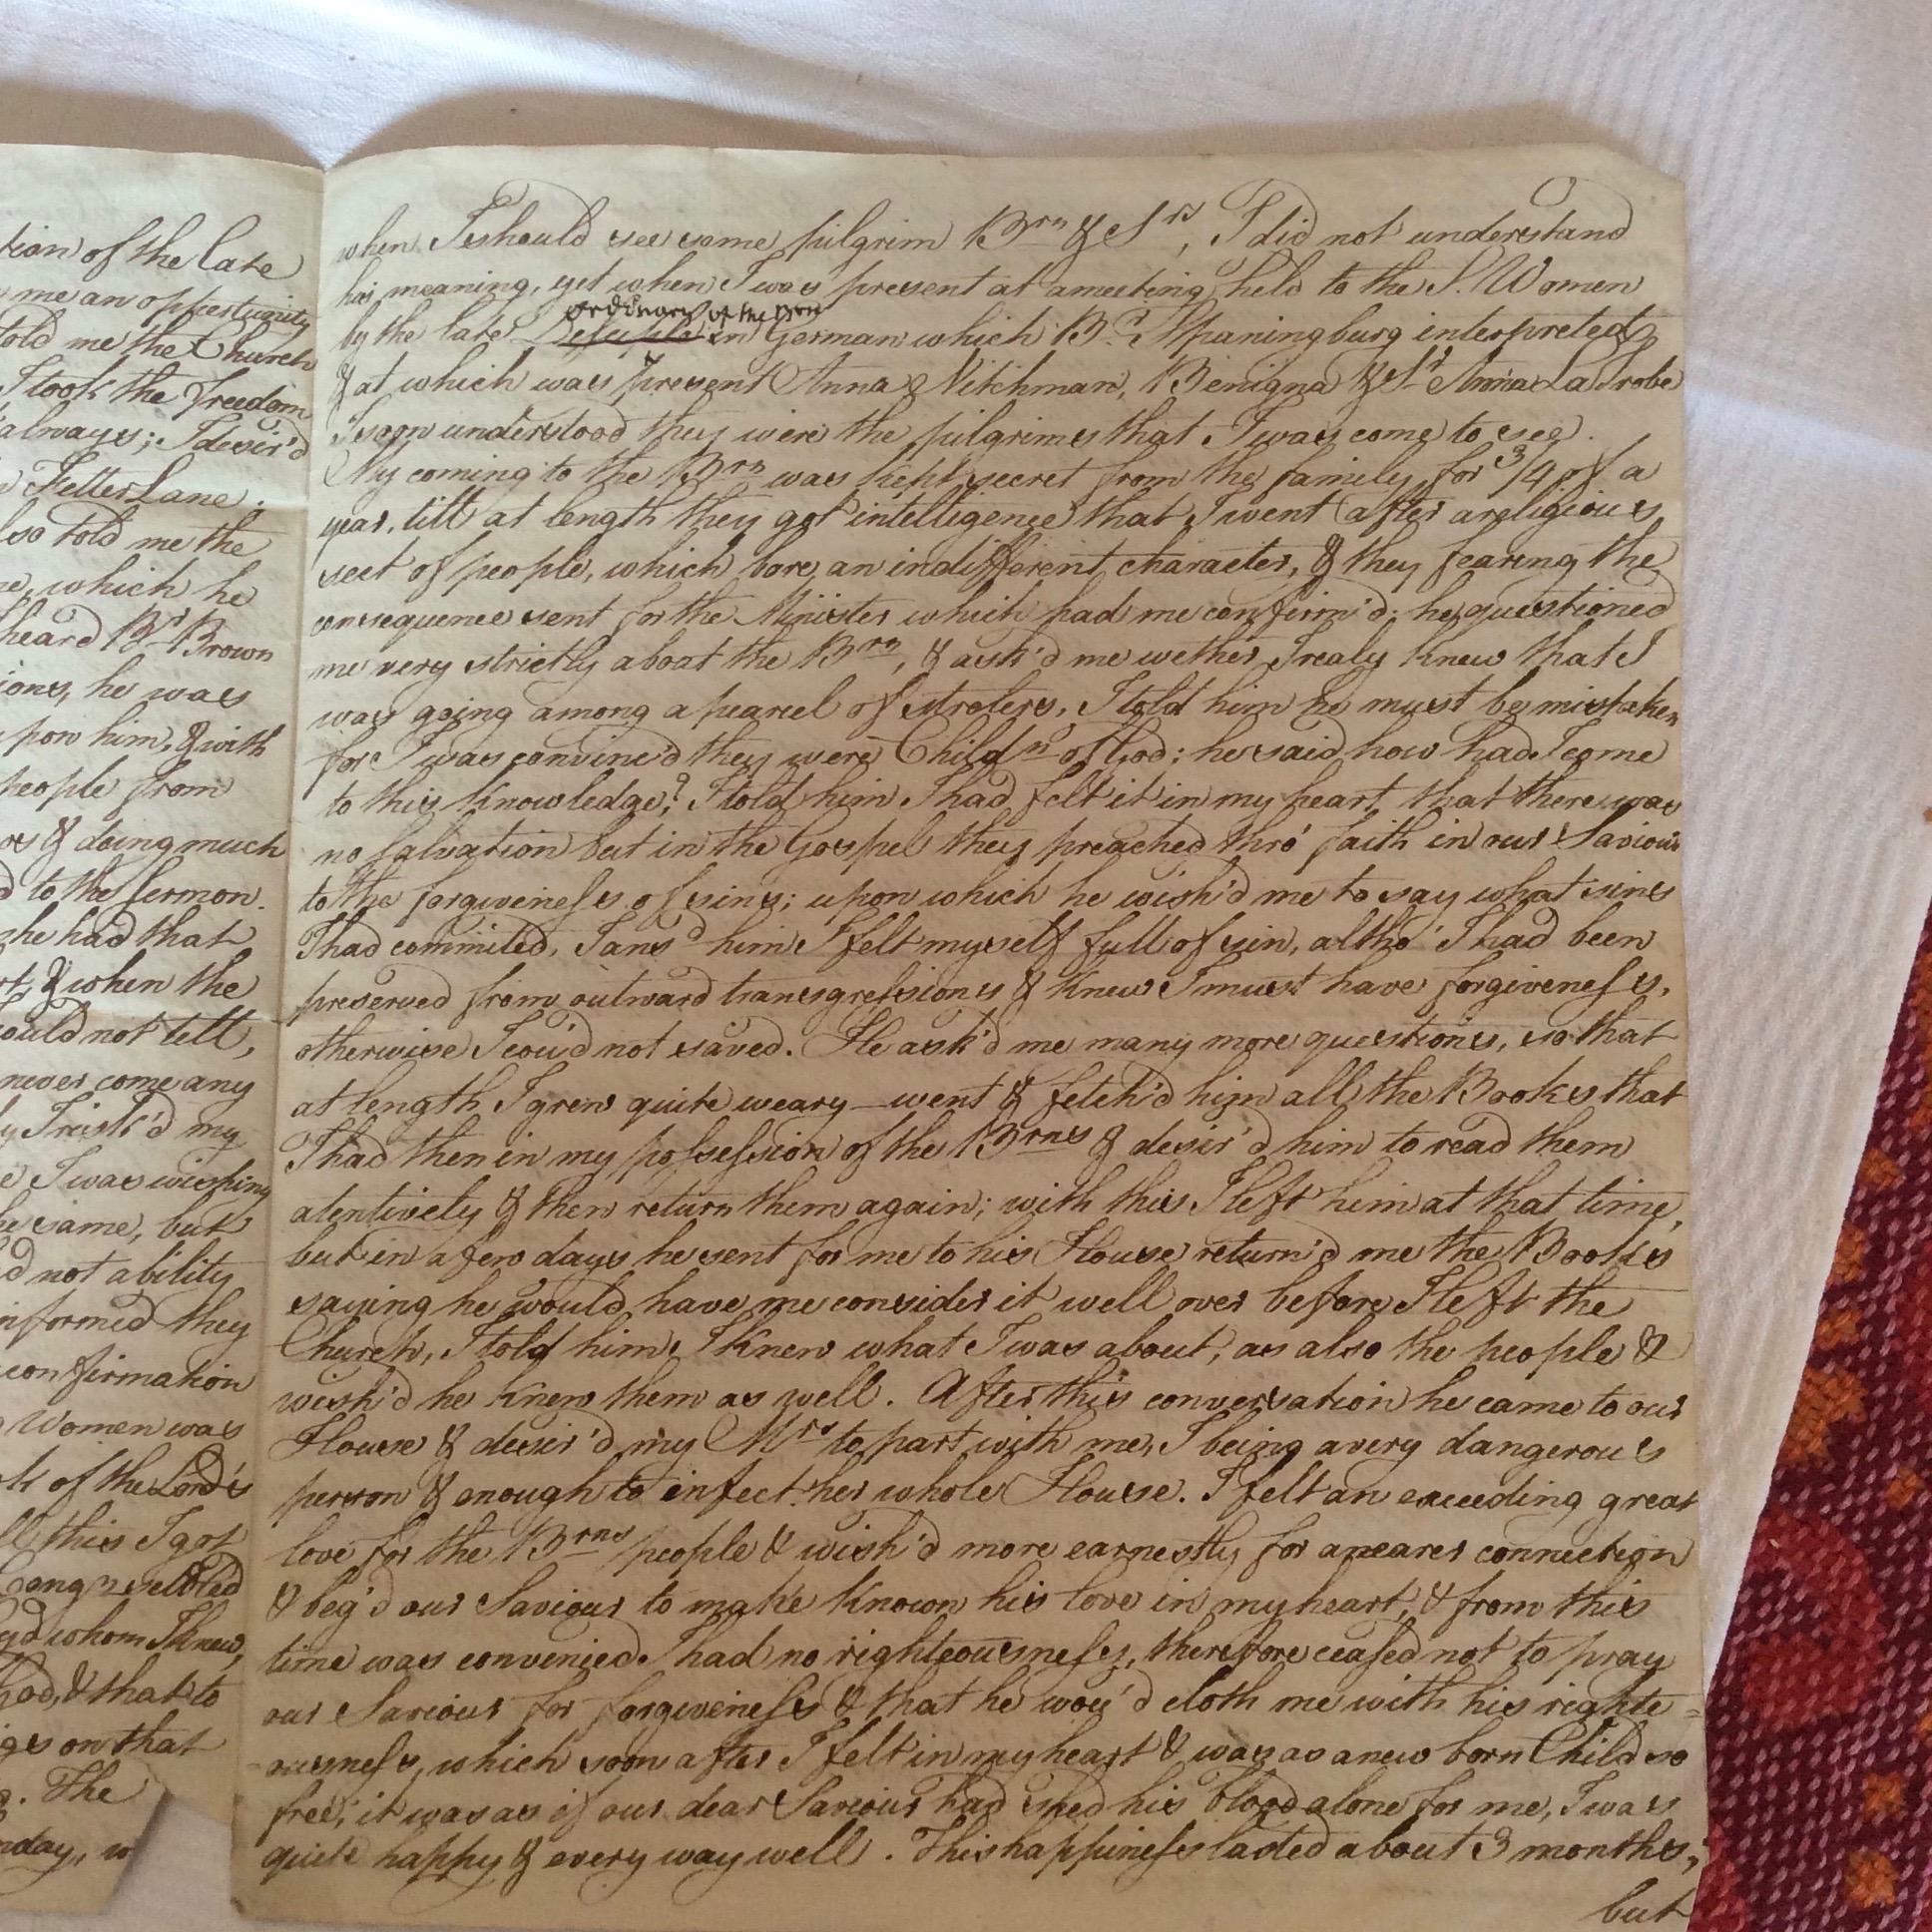 tion of the late
me an oppertunity
told me the Church
I took the freedom
always; I desir'd
Fetter Lane;
lso told me the
which he
heard Br Brown
ions, he was
upon him, & with
people from
& doing much
d to the sermon.
he had that
& when the
ould not tell,
never come any
I risk'd my
I was wishing
came, but
d not ability
nformed they
confirmation
Women was
k of the Lord's
ll this I got
Congn settled
whom I knew,
God, & that to
on that
The
nday, w
when I should see some pilgrim Brn & Srs, I did not understand
his meaning, yet when I was present at a meeting held to the S. Women
ordinary of the Brn
by the late Desciple in German which Br. Spaningburg interpreted,
& at which was present Anna Nitchman, Benigna & Sr Anna La Trobe
I soon understood they were the pilgrims that I was come to see.
My coming to the Brn was kept secret from the family for 3/4 of a
year, till at length they got intelligence that I went after a religious
sect of people, which bore an indifferent character, & they fearing the
consequence sent for the Minister which had me confirm'd; he questioned
me very strictly about the Brn, & ask'd me wether I realy knew that I
was going among a pearcel of stroters, I told him he must be mistaken
for I was convinc'd they were Childn of God; he said how had I come
to this knowledge? I told him I had felt it in my heart, that there was
no salvation but in the Gospel they preached thro' faith in our Saviour
to the forgiveness of sins; upon which he wish'd me to say what sins
I had commited, I ansd him I felt myself full of sin, altho' I had been
preserved from outward transgressions & knew I must have forgiveness,
otherwise I cou'd not saved. He ask'd me many more questions, so that
at length I grew quite weary – went & fetch'd him all the Books that
I had then in my possession of the Brns & desir'd him to read them
atentively & then return them again; with this I left him at that time,
but in a few days he sent for me to his House return'd me the Books
saying he would have me consider it well over before I left the
Church, I told him I knew what I was about, as also the people &
wish'd he knew them as well. After this conversation he came to our
House & desir'd my Mrs to part with me, I being a very dangerous
person & enough to infect her whole House. I felt an exceeding great
love for the Brns people & wish'd more earnestly for a nearer connection
& beg'd our Saviour to make known his love in my heart, & from this
time was convenied I had no righteousness, therefore ceased not to pray
our Saviour for forgiveness & that he wou'd cloth me with his righte=
=ousness, which soon after I felt in my heart & was as a new born Child so
free; it was as if our dear Saviour had shed his blood alone for me, I was
quite happy & every way well. This happiness lasted about 3 months,
but